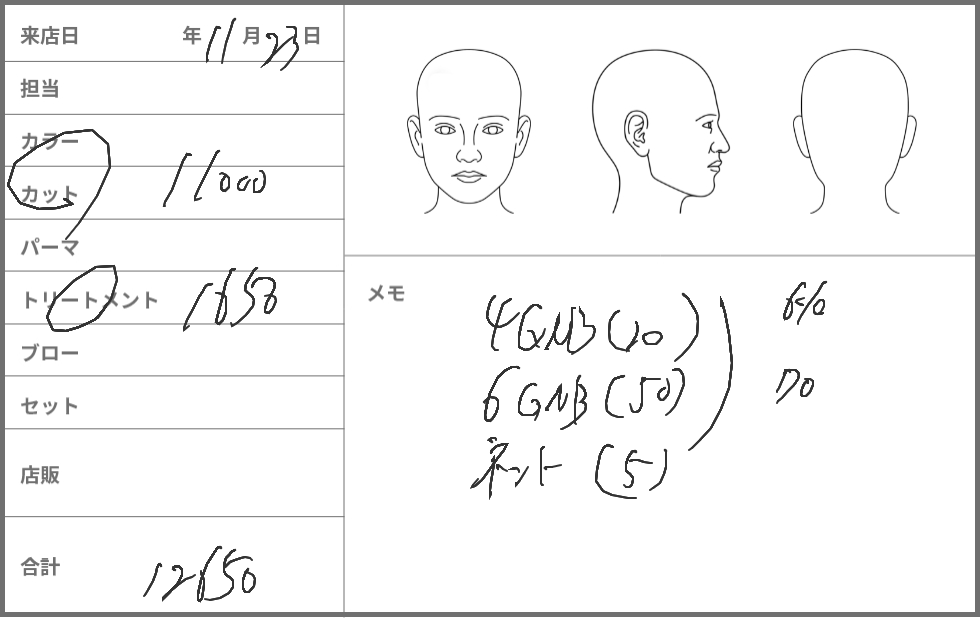 来店日 年 11 月 23 日
担当
カラー
カット 11000
パーマ
トリートメント 1650
ブロー
セット
店販
合計 12650
メモ
4GNB (20)
6GNB (50)
(5)